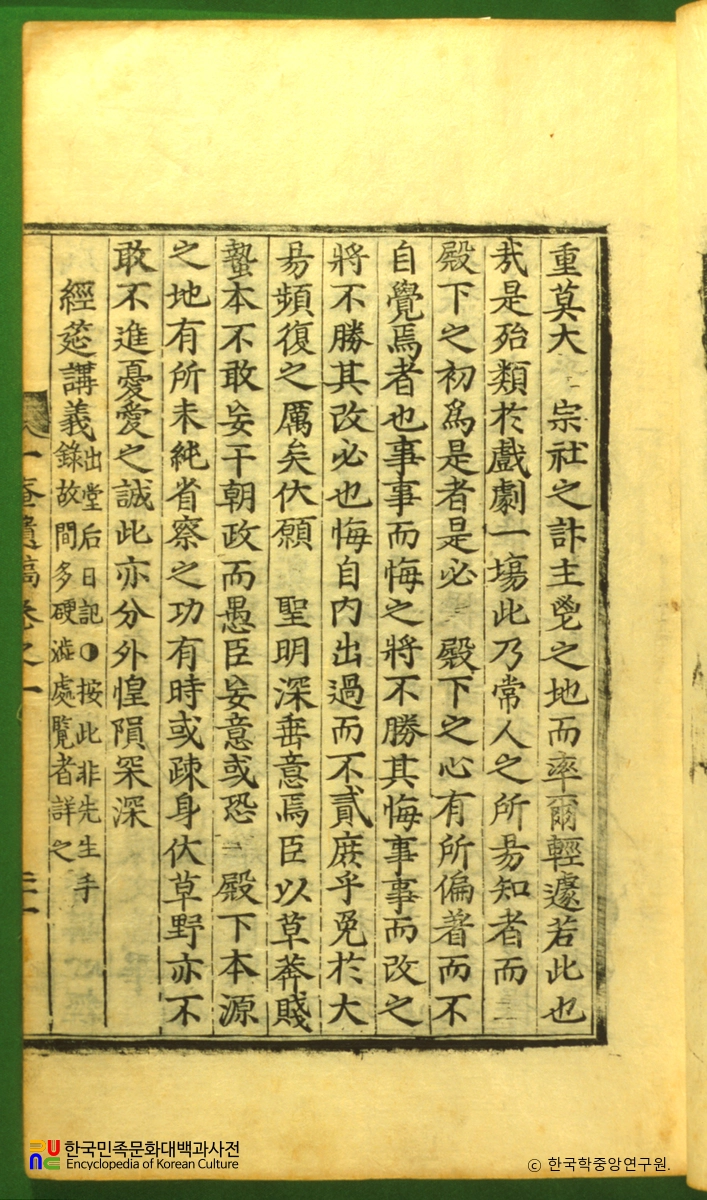 重莫大 宗社之主鬯之地而率爾輕遽若此也
哉是殆類於戲劇一場此乃常人之所易知者而
殿下之初爲是者是必 殿下之心有所偏着而不
自覺焉者也事事而悔之將不勝其悔事事而改之
將不勝其改必也悔自內出過而不貳庶乎免於大
易頻復之厲矣伏願 聖明深垂意焉臣以草莽賤
蟄本不敢妄干朝政而愚臣妄意或恐 殿下本源
之地有所未純省察之功有時或疎身伏草野亦不
敢不進憂愛之誠此亦分外惶隕罙深
經筵講義
出堂后日記●按此非先生手
錄故間多硬澁處覽者詳之
一庵遺稿卷之一
한국민족문화대백과사전
Encyclopedia of Korean Culture
© 한국학중앙연구원.